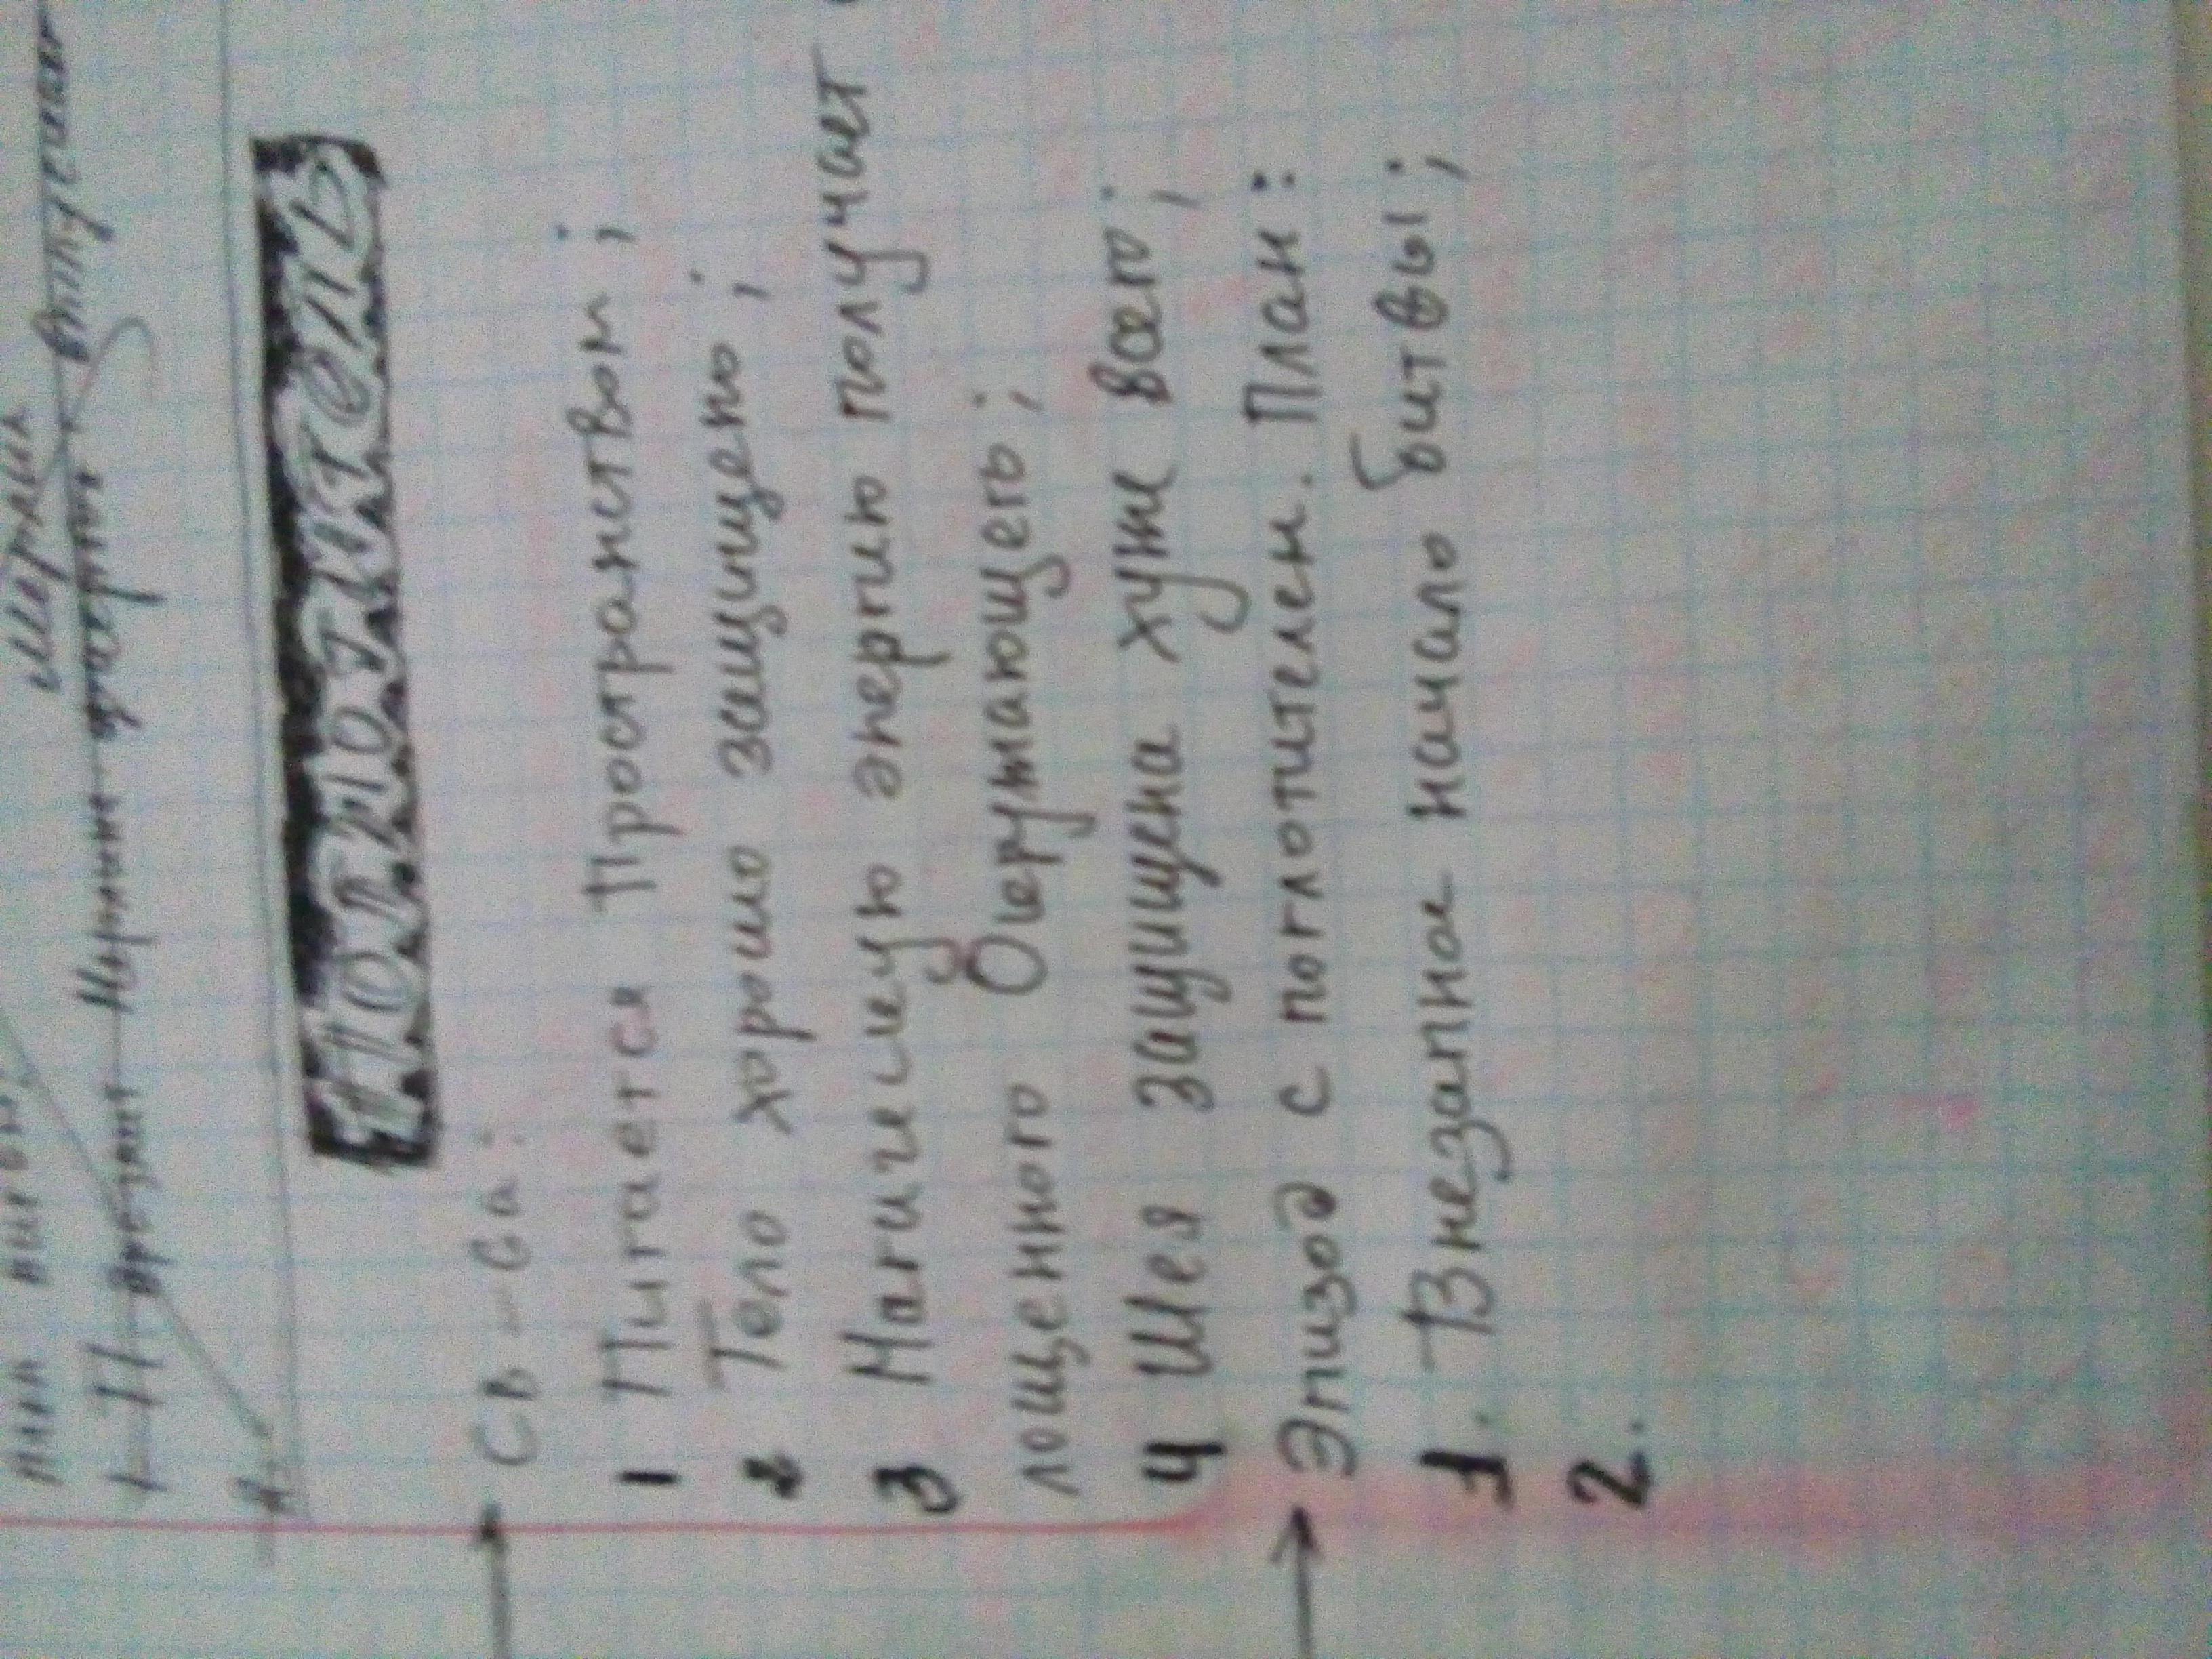 Мерлин
ПОГЛОТИТЕЛЬ
→ СВ-ва:
1 Питается Пространством;
2 Тело хорошо защищено;
3 Магическую энергию получает
лощенного Окружающего;
4 Шея защищена хуже всего;
→ Эпизод с поглотителем. План:
1. Внезапное начало битвы;
2.